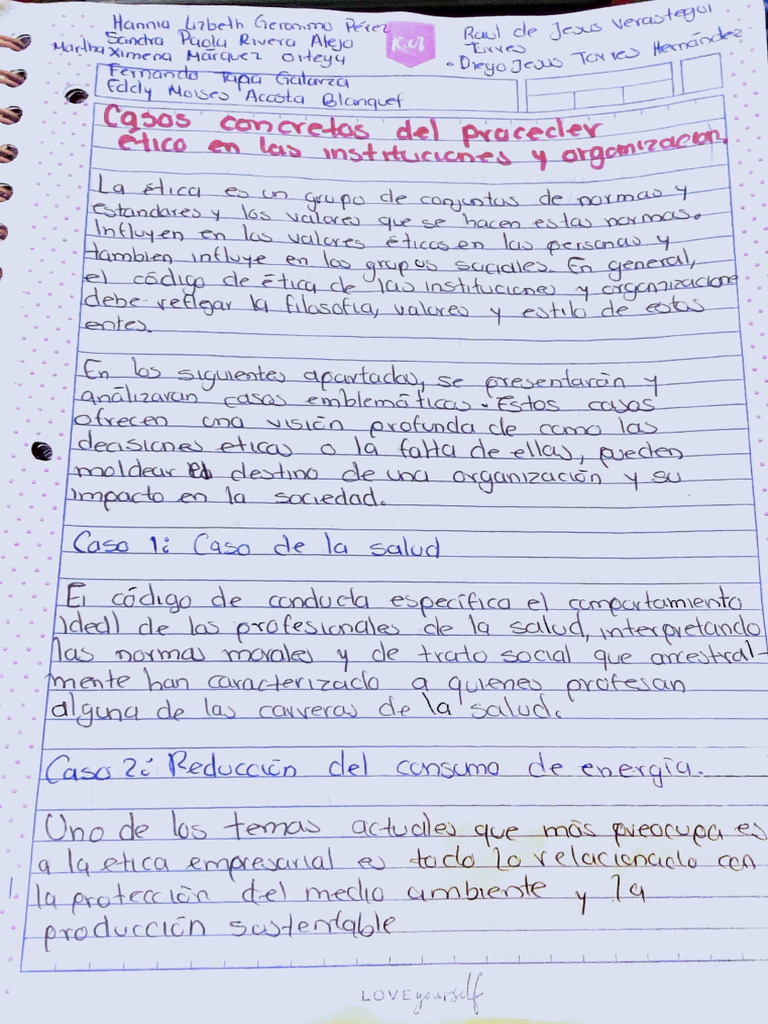 Hannia Lizbeth Geronimo Pérez
Sandra Paola Rivera Alejo
Martha Ximena Márquez Ortega
Fernando Tapia Galarza
Eddy Moises Acosta Blanquet
Kiut
Raul de Jesus Verastegui
Torres
• Diego Jesus Torres Hernández
Casos concretos del proceder
ético en las instituciones y organizacion.
La ética es un grupo de conjuntos de normas y
estandares y los valores que se hacen estas normas.
Influyen en los valores éticos en las personas y
tambien influye en los grupos sociales. En general,
el código de ética de las instituciones y organizacione
debe reflejar la filosofia, valores y estilo de estos
entes.
En los siguientes apartados, se presentarán y
análizaran casos emblemáticos. Estos casos
ofrecen una visión profunda de como las
decisiones eticas o la falta de ellas, pueden
moldear el destino de una organización y su
impacto en la sociedad.
Caso 1: Caso de la salud
El código de conducta específica el comportamiento
ideal de los profesionales de la salud, interpretando
las normas morales y de trato social que ancestral-
mente han caracterizado a quienes profesan
alguna de las carreras de la salud.
Caso 2: Reducción del consumo de energía.
Uno de los temas actuales que más preocupa es
a la etica empresarial es todo lo relacionado con
la protección del medio ambiente y la
producción sustentable
LOVE yourself